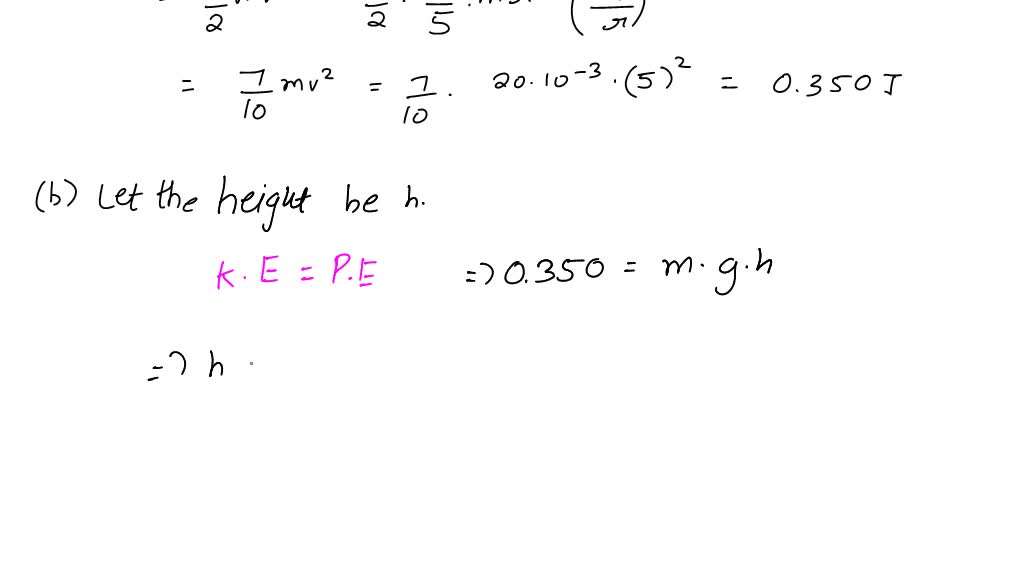 2 2 5
= 7/10 mv² = 7/10 . 20.10⁻³.(5)² = 0.350 J
(b) Let the height be h.
K.E = P.E => 0.350 = m.g.h
=> h